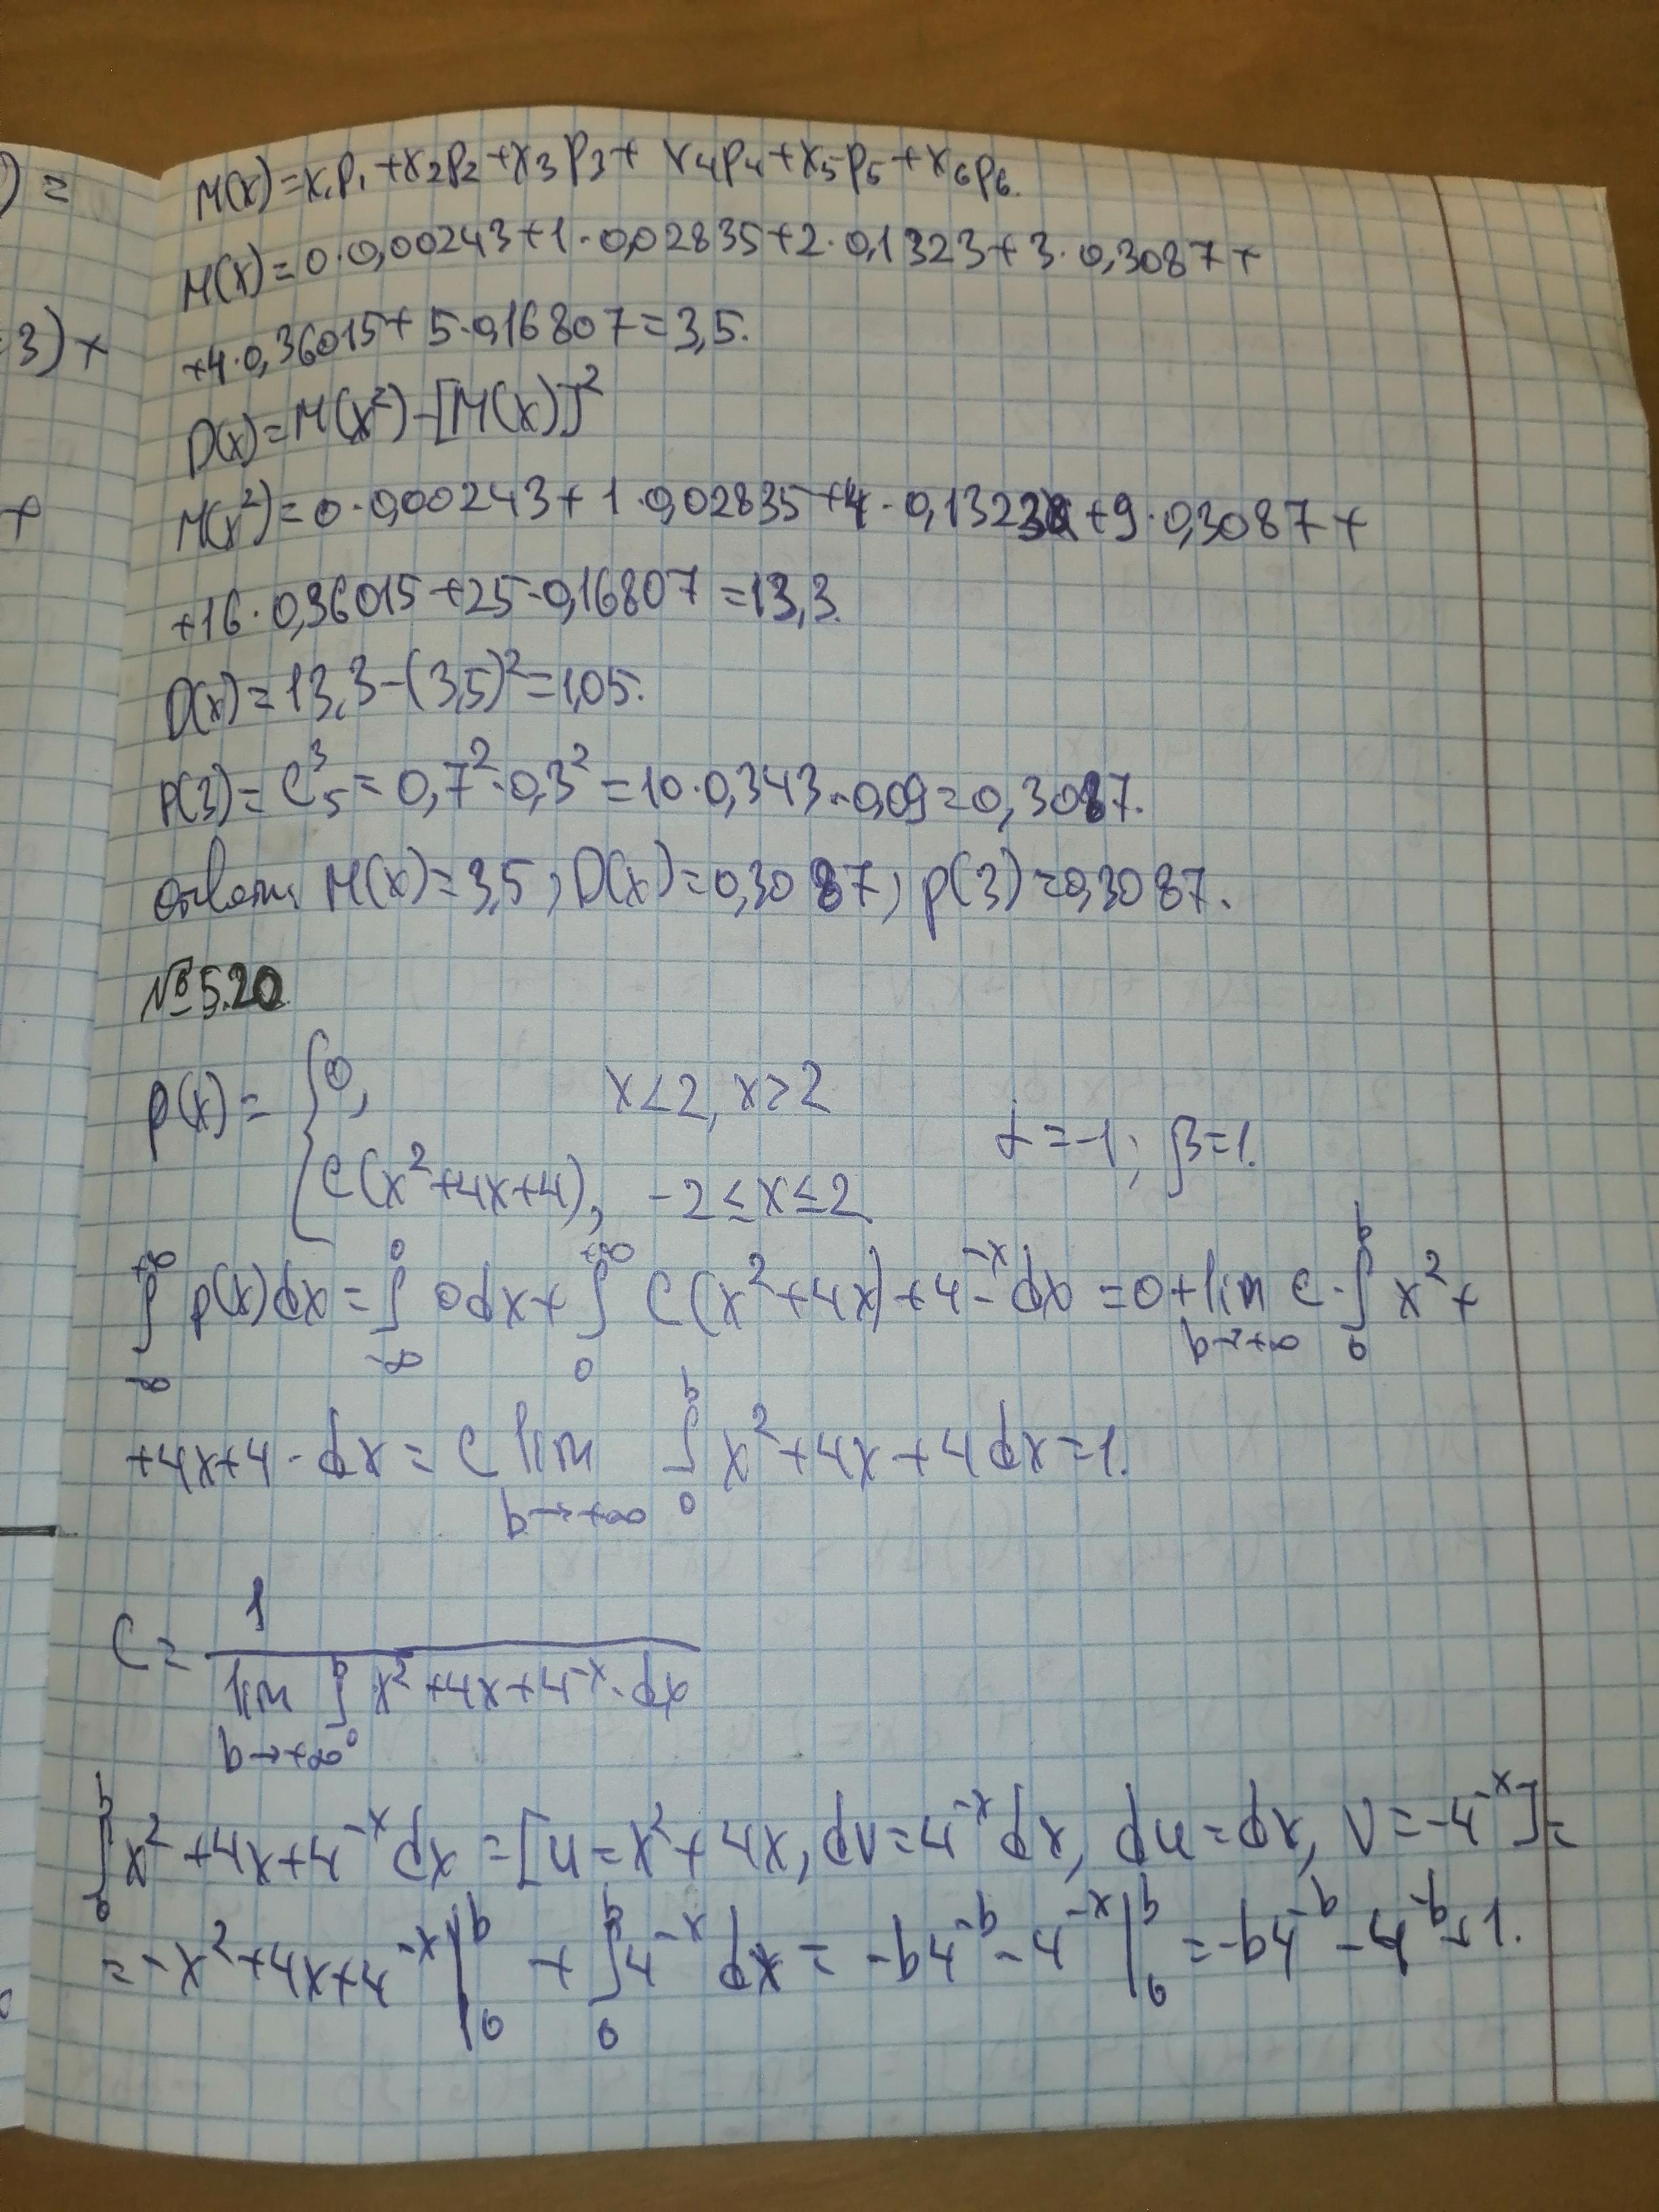 ) =
M(x)=x₁p₁+x₂p₂+x₃p₃+x₄p₄+x₅p₅+x₆p₆.
M(x)=0·0,00243+1·0,02835+2·0,1323+3·0,3087+
3)+
+4·0,36015+5·0,16807=3,5.
D(x)=M(x²)-[M(x)]²
+
M(x²)=0·0,00243+1·0,02835+4·0,1323+9·0,3087+
+16·0,36015+25·0,16807=13,3.
D(x)=13,3-(3,5)²=1,05.
P(3)=C₅³=0,7²·0,3²=10·0,343·0,09=0,3087.
ответ: M(x)=3,5; D(x)=0,3087; p(3)=0,3087.
№5.20
p(x)={0, x<2, x>2
α=-1; β=1.
C(x²+4x+4), -2≤x≤2
∫_{-∞}^{+∞} p(x)dx=∫_{-∞}^{0} 0dx+∫_{0}^{+∞} C(x²+4x)+4^{-x}dx=0+lim_{b→+∞} C·∫_{0}^{b} x²+
+4x+4·dx=C lim_{b→+∞} ∫_{0}^{b} x²+4x+4dx=1.
C=1/(lim_{b→+∞} ∫_{0}^{b} x²+4x+4^{-x}·dx)
∫_{0}^{b} x²+4x+4^{-x}dx=[u=x²+4x, dv=4^{-x}dx, du=dx, v=-4^{-x}]=
=-x²+4x+4^{-x}|_{0}^{b}+∫_{0}^{b} 4^{-x}dx=-b4^{-b}-4^{-x}|_{0}^{b}=-b4^{-b}-4^{-b}+1.